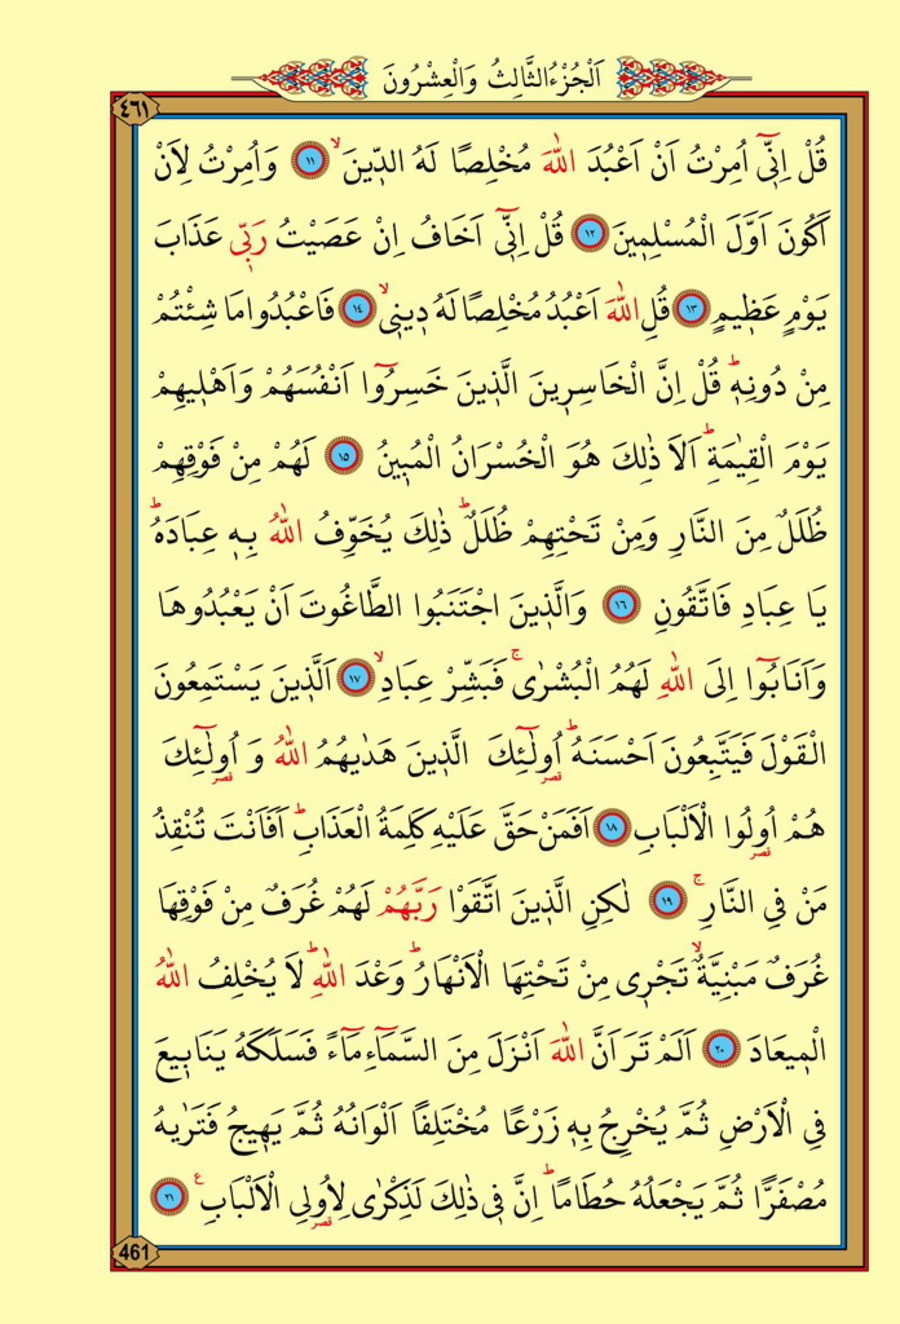 اَلْجُزْءُ الثَّالِثُ وَالْعِشْرُونَ
٤٦١
قُلْ اِنّ۪ٓي اُمِرْتُ اَنْ اَعْبُدَ اللّٰهَ مُخْلِصًا لَهُ الدّ۪ينَۙ ﴿١١﴾ وَاُمِرْتُ لِاَنْ
اَكُونَ اَوَّلَ الْمُسْلِم۪ينَ ﴿١٢﴾ قُلْ اِنّ۪ٓي اَخَافُ اِنْ عَصَيْتُ رَبّ۪ي عَذَابَ
يَوْمٍ عَظ۪يمٍ ﴿١٣﴾ قُلِ اللّٰهَ اَعْبُدُ مُخْلِصًا لَهُ د۪ين۪يۙ ﴿١٤﴾ فَاعْبُدُوا مَا شِئْتُمْ
مِنْ دُونِه۪ۜ قُلْ اِنَّ الْخَاسِر۪ينَ الَّذ۪ينَ خَسِرُٓوا اَنْفُسَهُمْ وَاَهْل۪يهِمْ
يَوْمَ الْقِيٰمَةِۜ اَلَا ذٰلِكَ هُوَ الْخُسْرَانُ الْمُب۪ينُ ﴿١٥﴾ لَهُمْ مِنْ فَوْقِهِمْ
ظُلَلٌ مِنَ النَّارِ وَمِنْ تَحْتِهِمْ ظُلَلٌۜ ذٰلِكَ يُخَوِّفُ اللّٰهُ بِه۪ عِبَادَهُۜ
يَا عِبَادِ فَاتَّقُونِ ﴿١٦﴾ وَالَّذ۪ينَ اجْتَنَبُوا الطَّاغُوتَ اَنْ يَعْبُدُوهَا
وَاَنَابُٓوا اِلَى اللّٰهِ لَهُمُ الْبُشْرٰىۚ فَبَشِّرْ عِبَادِۙ ﴿١٧﴾ اَلَّذ۪ينَ يَسْتَمِعُونَ
الْقَوْلَ فَيَتَّبِعُونَ اَحْسَنَهُۜ اُو۬لٰٓئِكَ الَّذ۪ينَ هَدٰيهُمُ اللّٰهُ وَ اُو۬لٰٓئِكَ
هُمْ اُو۬لُوا الْاَلْبَابِ ﴿١٨﴾ اَفَمَنْ حَقَّ عَلَيْهِ كَلِمَةُ الْعَذَابِۜ اَفَاَنْتَ تُنْقِذُ
مَنْ فِي النَّارِۚ ﴿١٩﴾ لٰكِنِ الَّذ۪ينَ اتَّقَوْا رَبَّهُمْ لَهُمْ غُرَفٌ مِنْ فَوْقِهَا
غُرَفٌ مَبْنِيَّةٌۙ تَجْر۪ي مِنْ تَحْتِهَا الْاَنْهَارُۜ وَعْدَ اللّٰهِۜ لَا يُخْلِفُ اللّٰهُ
الْم۪يعَادَ ﴿٢٠﴾ اَلَمْ تَرَ اَنَّ اللّٰهَ اَنْزَلَ مِنَ السَّمَٓاءِ مَٓاءً فَسَلَكَهُ يَنَاب۪يعَ
فِي الْاَرْضِ ثُمَّ يُخْرِجُ بِه۪ زَرْعًا مُخْتَلِفًا اَلْوَانُهُ ثُمَّ يَه۪يجُ فَتَرٰيهُ
مُصْفَرًّا ثُمَّ يَجْعَلُهُ حُطَامًاۜ اِنَّ ف۪ي ذٰلِكَ لَذِكْرٰى لِاُو۬لِي الْاَلْبَابِ۟ ﴿٢١﴾
461